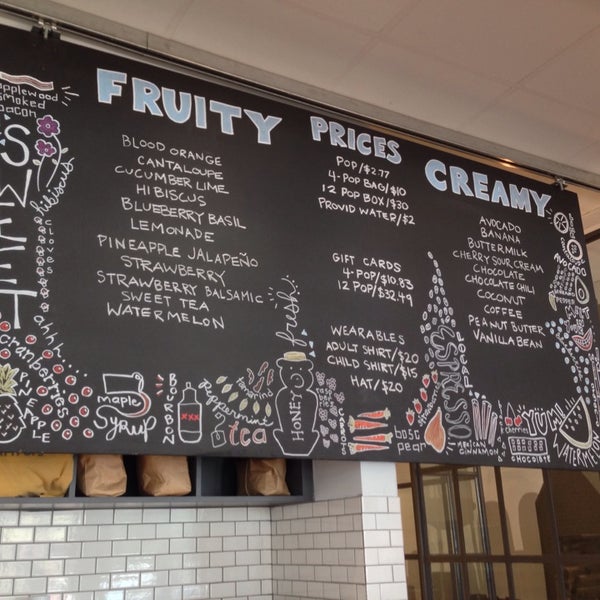 applewood
smoked
bacon
SWEET
hibiscus
cloves
ahhh
cranberries
pineapple
FRUITY
BLOOD ORANGE
CANTALOUPE
CUCUMBER LIME
HIBISCUS
BLUEBERRY BASIL
LEMONADE
PINEAPPLE JALAPEÑO
STRAWBERRY
STRAWBERRY BALSAMIC
SWEET TEA
WATERMELON
PRICES
POP/$2.77
4-POP BAG/$10
12 POP BOX/$30
PROVID WATER/$2
GIFT CARDS
4-POP/$10.83
12 POP/$32.49
WEARABLES
ADULT SHIRT/$20
CHILD SHIRT/$15
HAT/$20
CREAMY
AVOCADO
BANANA
BUTTERMILK
CHERRY SOUR CREAM
CHOCOLATE
CHOCOLATE CHILI
COCONUT
COFFEE
PEANUT BUTTER
VANILLA BEAN
maple
syrup
BOURBON
XXX
peppermint
tea
fresh
HONEY
CAROTS
bosc
pear
ESPRESSO
MEXICAN
CINNAMON
cherries
CHOCOLATE
YUM!
WATERMELON
AVOCADO